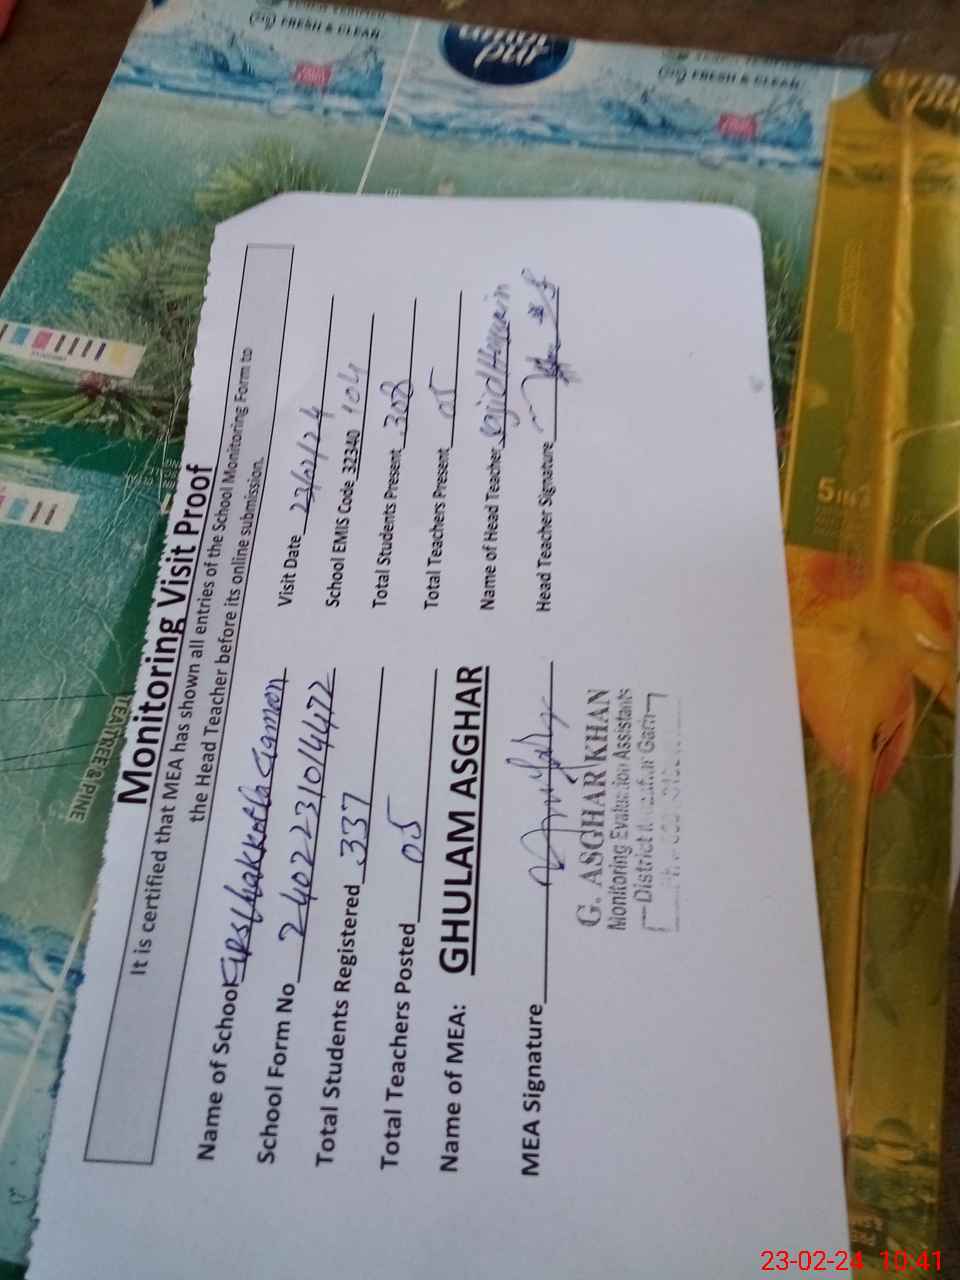 FRESH & CLEAN
pur
FRESH & CLEAN
5 IN 1
TEA TREE & PINE
Monitoring Visit Proof
It is certified that MEA has shown all entries of the School Monitoring Form to
the Head Teacher before its online submission.
Name of School
Visit Date 23/02/24
School Form No 2402231014472
School EMIS Code 32340 104
Total Students Registered 337
Total Students Present 308
Total Teachers Posted 05
Total Teachers Present 05
Name of MEA: GHULAM ASGHAR
Name of Head Teacher Sajid Hussain
MEA Signature
Head Teacher Signature
G. ASGHAR KHAN
Monitoring Evaluation Assistants
District Muzaffar Garh
23-02-24 10:41